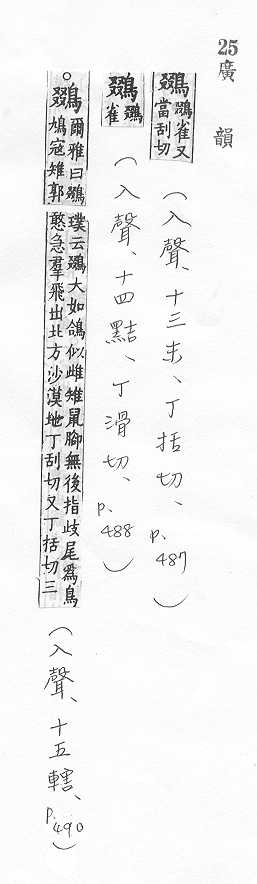 25廣韻
鵽 鵽雀又當刮切（入聲、十三末、丁括切、p.487）
鵽 鵽雀（入聲、十四黠、丁滑切、p.488）
○鵽 爾雅曰鵽鳩寇雉郭璞云鵽大如鴿似雌雉鼠腳無後指歧尾爲鳥憨急羣飛出北方沙漠地丁刮切又丁括切三（入聲、十五轄、p.490）